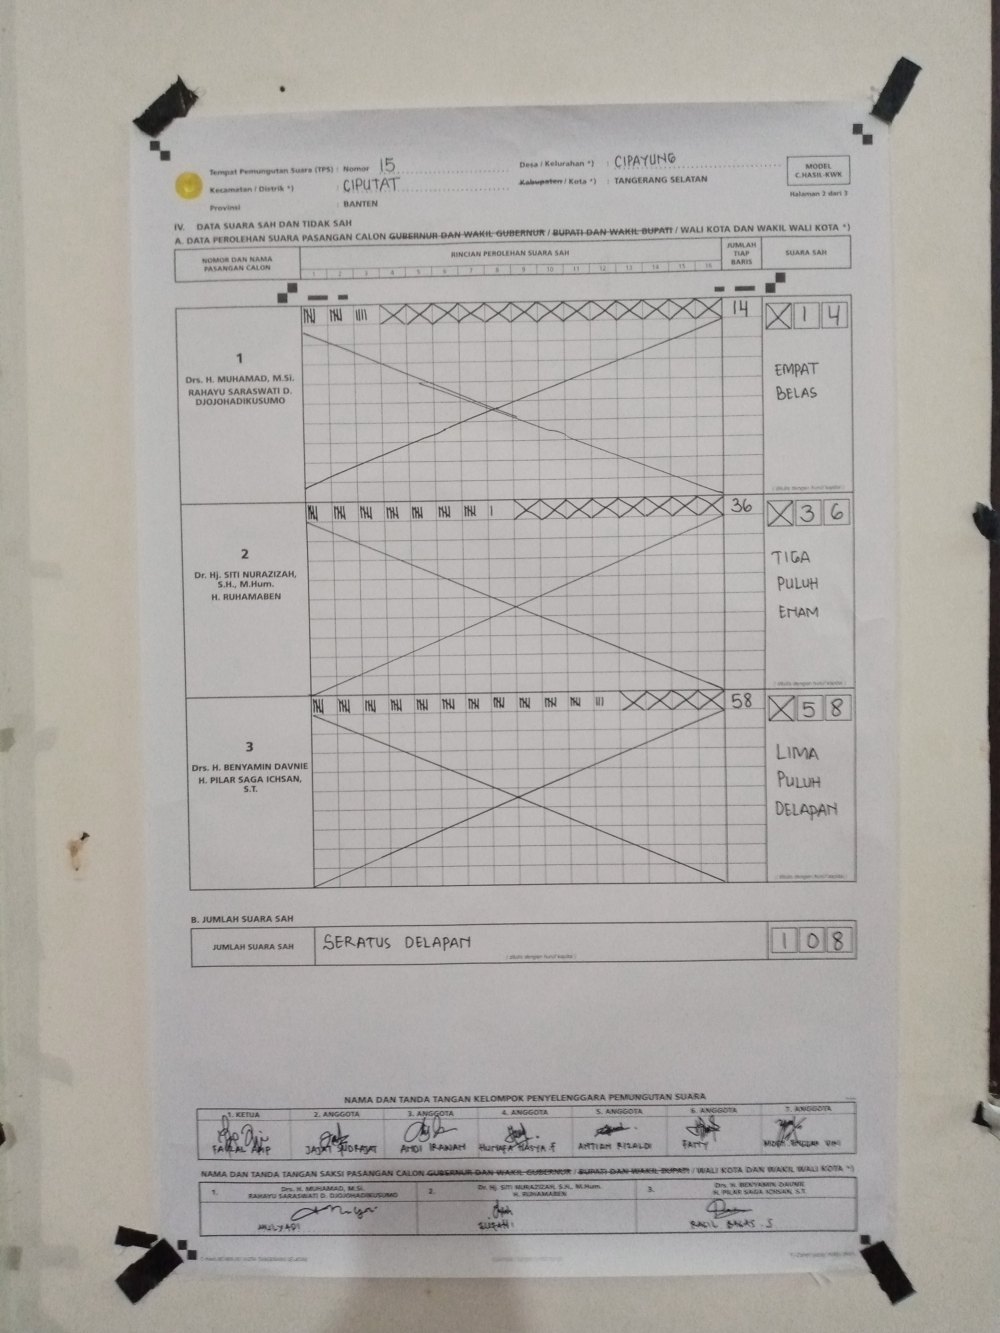 Tempat Pemungutan Suara (TPS) : Nomor 15
Desa / Kelurahan *) : CIPAYUNG
MODEL
C.HASIL-KWK
Kecamatan / Distrik *) : CIPUTAT
Kabupaten / Kota *) : TANGERANG SELATAN
Halaman 2 dari 3
Provinsi : BANTEN
IV. DATA SUARA SAH DAN TIDAK SAH
A. DATA PEROLEHAN SUARA PASANGAN CALON GUBERNUR DAN WAKIL GUBERNUR / BUPATI DAN WAKIL BUPATI / WALI KOTA DAN WAKIL WALI KOTA *)
NOMOR DAN NAMA
PASANGAN CALON
RINCIAN PEROLEHAN SUARA SAH
JUMLAH
TIAP
BARIS
SUARA SAH
1 2 3 4 5 6 7 8 9 10 11 12 13 14 15 16
1
Drs. H. MUHAMAD, M.Si.
RAHAYU SARASWATI D.
DJOJOHADIKUSUMO
14
X 1 4
EMPAT
BELAS
( ditulis dengan huruf kapital )
2
Dr. Hj. SITI NURAZIZAH,
S.H., M.Hum.
H. RUHAMABEN
36
X 3 6
TIGA
PULUH
ENAM
( ditulis dengan huruf kapital )
3
Drs. H. BENYAMIN DAVNIE
H. PILAR SAGA ICHSAN,
S.T.
58
X 5 8
LIMA
PULUH
DELAPAN
( ditulis dengan huruf kapital )
B. JUMLAH SUARA SAH
JUMLAH SUARA SAH
SERATUS DELAPAN
( ditulis dengan huruf kapital )
1 0 8
NAMA DAN TANDA TANGAN KELOMPOK PENYELENGGARA PEMUNGUTAN SUARA
1. KETUA 2. ANGGOTA 3. ANGGOTA 4. ANGGOTA 5. ANGGOTA 6. ANGGOTA 7. ANGGOTA
ANDI IRAWAN
FATTY
NAMA DAN TANDA TANGAN SAKSI PASANGAN CALON GUBERNUR DAN WAKIL GUBERNUR / BUPATI DAN WAKIL BUPATI / WALI KOTA DAN WAKIL WALI KOTA *)
1. Drs. H. MUHAMAD, M.Si.
RAHAYU SARASWATI D. DJOJOHADIKUSUMO
2. Dr. Hj. SITI NURAZIZAH, S.H., M.Hum.
H. RUHAMABEN
3. Drs. H. BENYAMIN DAVNIE
H. PILAR SAGA ICHSAN, S.T.
MULYADI